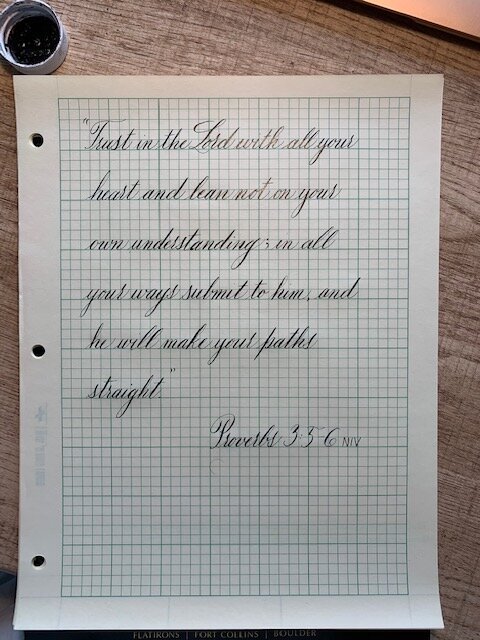 "Trust in the Lord with all your
heart and lean not on your
own understanding; in all
your ways submit to him, and
he will make your paths
straight."
Proverbs 3:5-6 NIV
FLATIRONS | FORT COLLINS | BOULDER